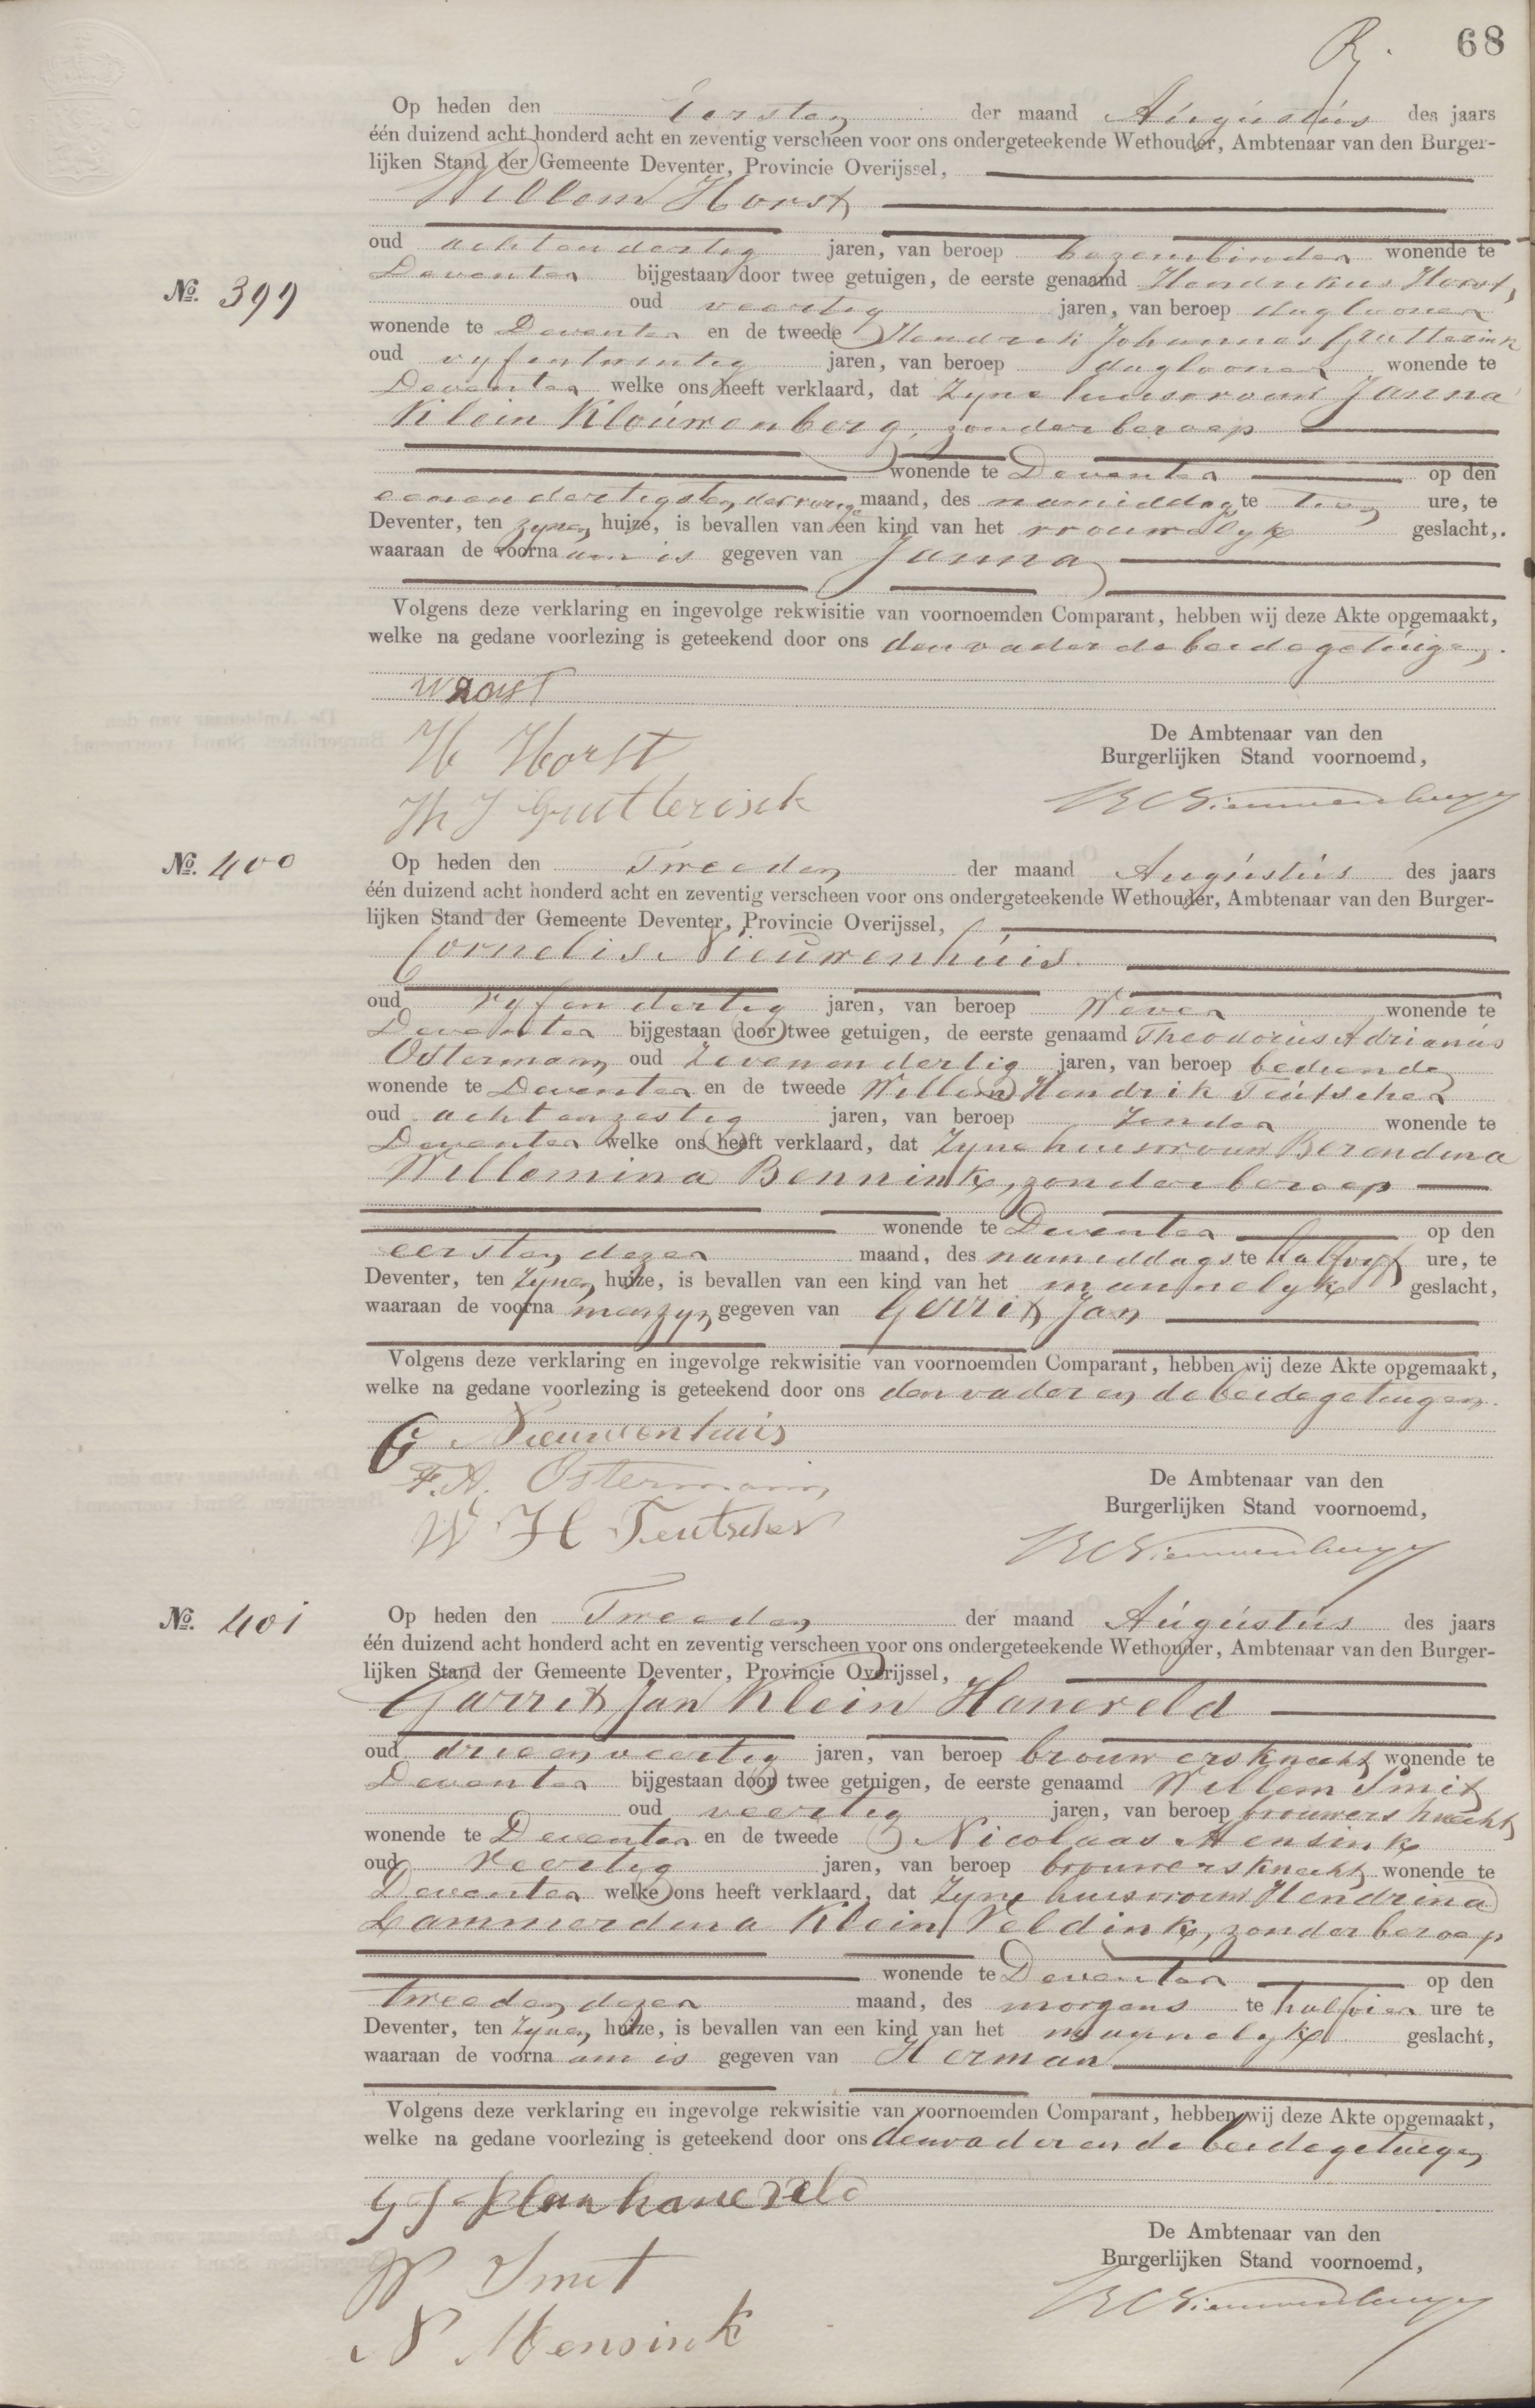 68
Op heden den Eersten der maand Augustus des jaars
één duizend acht honderd acht en zeventig verscheen voor ons ondergeteekende Wethouder, Ambtenaar van den Burger-
lijken Stand der Gemeente Deventer, Provincie Overijssel,
Willem Horst
oud achtendertig jaren, van beroep bezembinder wonende te
Deventer bijgestaan door twee getuigen, de eerste genaamd Hendrikus Horst,
No. 399
oud veertig jaren, van beroep dagloner
wonende te Deventer en de tweede Hendrik Johannes Grutterink
oud vyfentwintig jaren, van beroep dagloner wonende te
Deventer welke ons heeft verklaard, dat Zyne huisvrouw Janna
Klein Klouwenberg, zonder beroep
wonende te Deventer op den
eenendertigsten der vorige maand, des namiddags te tien ure, te
Deventer, ten zynen huize, is bevallen van een kind van het vrouwelyk geslacht,
waaraan de voorna am is gegeven van Janna
Volgens deze verklaring en ingevolge rekwisitie van voornoemden Comparant, hebben wij deze Akte opgemaakt,
welke na gedane voorlezing is geteekend door ons den vader de beide getuigen.
W Horst
H Horst
H J Grutterink
De Ambtenaar van den
Burgerlijken Stand voornoemd,
No. 400
Op heden den Tweeden der maand Augustus des jaars
één duizend acht honderd acht en zeventig verscheen voor ons ondergeteekende Wethouder, Ambtenaar van den Burger-
lijken Stand der Gemeente Deventer, Provincie Overijssel,
Cornelis Nieuwenhuis
oud vyfendertig jaren, van beroep Wever wonende te
Deventer bijgestaan door twee getuigen, de eerste genaamd Theodorus Adrianus
Ostermann oud Zevenendertig jaren, van beroep bediende
wonende te Deventer en de tweede Willem Hendrik Teutscher
oud achtenzestig jaren, van beroep zonder wonende te
Deventer welke ons heeft verklaard, dat Zyne huisvrouw Berendina
Willemina Bennink, zonder beroep
wonende te Deventer op den
eersten dezer maand, des namiddags te halfvyf ure, te
Deventer, ten Zynen huize, is bevallen van een kind van het mannelyk geslacht,
waaraan de voorna men zyn gegeven van Gerrit Jan
Volgens deze verklaring en ingevolge rekwisitie van voornoemden Comparant, hebben wij deze Akte opgemaakt,
welke na gedane voorlezing is geteekend door ons den vader en de beide getuigen.
C Nieuwenhuis
T. A. Ostermann
W H Teutscher
De Ambtenaar van den
Burgerlijken Stand voornoemd,
No. 401
Op heden den Tweeden der maand Augustus des jaars
één duizend acht honderd acht en zeventig verscheen voor ons ondergeteekende Wethouder, Ambtenaar van den Burger-
lijken Stand der Gemeente Deventer, Provincie Overijssel,
Garrit Jan Klein Haneveld
oud drieenveertig jaren, van beroep brouwersknecht wonende te
Deventer bijgestaan door twee getuigen, de eerste genaamd Willem Smit
oud veertig jaren, van beroep brouwersknecht
wonende te Deventer en de tweede Nicolaas Mensink
oud veertig jaren, van beroep brouwersknecht wonende te
Deventer welke ons heeft verklaard, dat Zyne huisvrouw Hendrina
Lammerdina Klein Veldink, zonder beroep
wonende te Deventer op den
tweeden dezer maand, des morgens te halfvier ure te
Deventer, ten Zynen huize, is bevallen van een kind van het mannelyk geslacht,
waaraan de voorna am is gegeven van Herman
Volgens deze verklaring en ingevolge rekwisitie van voornoemden Comparant, hebben wij deze Akte opgemaakt,
welke na gedane voorlezing is geteekend door ons den vader en de beide getuigen
G J Klein haneveld
W Smit
N Mensink
De Ambtenaar van den
Burgerlijken Stand voornoemd,